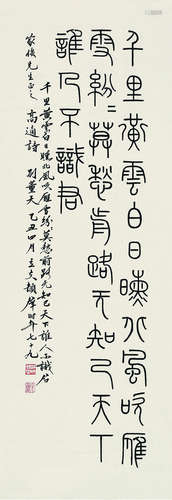 千里黃雲白日曛北風吹雁
雪紛〻莫愁前路无知己天丅
誰人不識君
千里黃雲白日曛北風吹雁雪紛〻莫愁前路无知己天下誰人不識君
先生正之高適詩別董大乙丑四月時年七十九